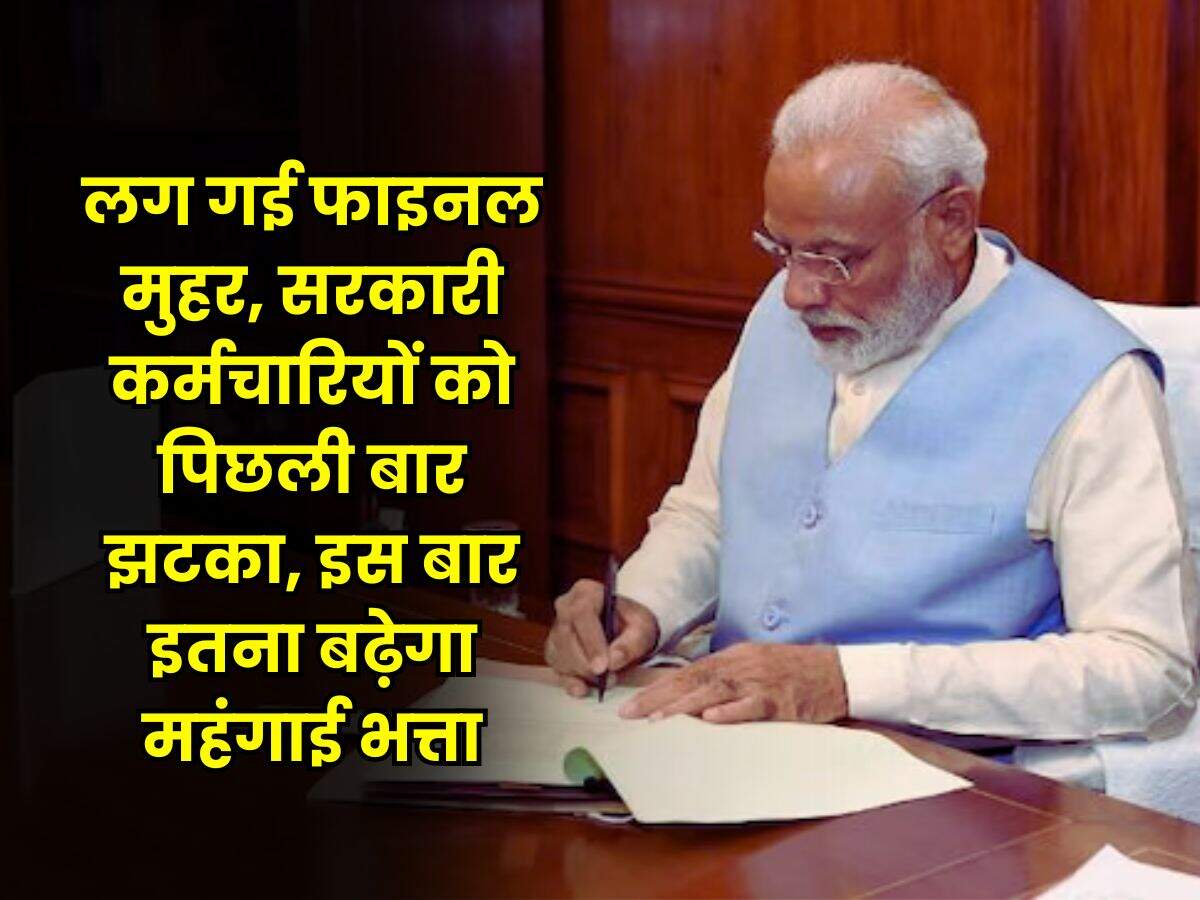 लग गई फाइनल
मुहर, सरकारी
कर्मचारियों को
पिछली बार
झटका, इस बार
इतना बढ़ेगा
महंगाई भत्ता